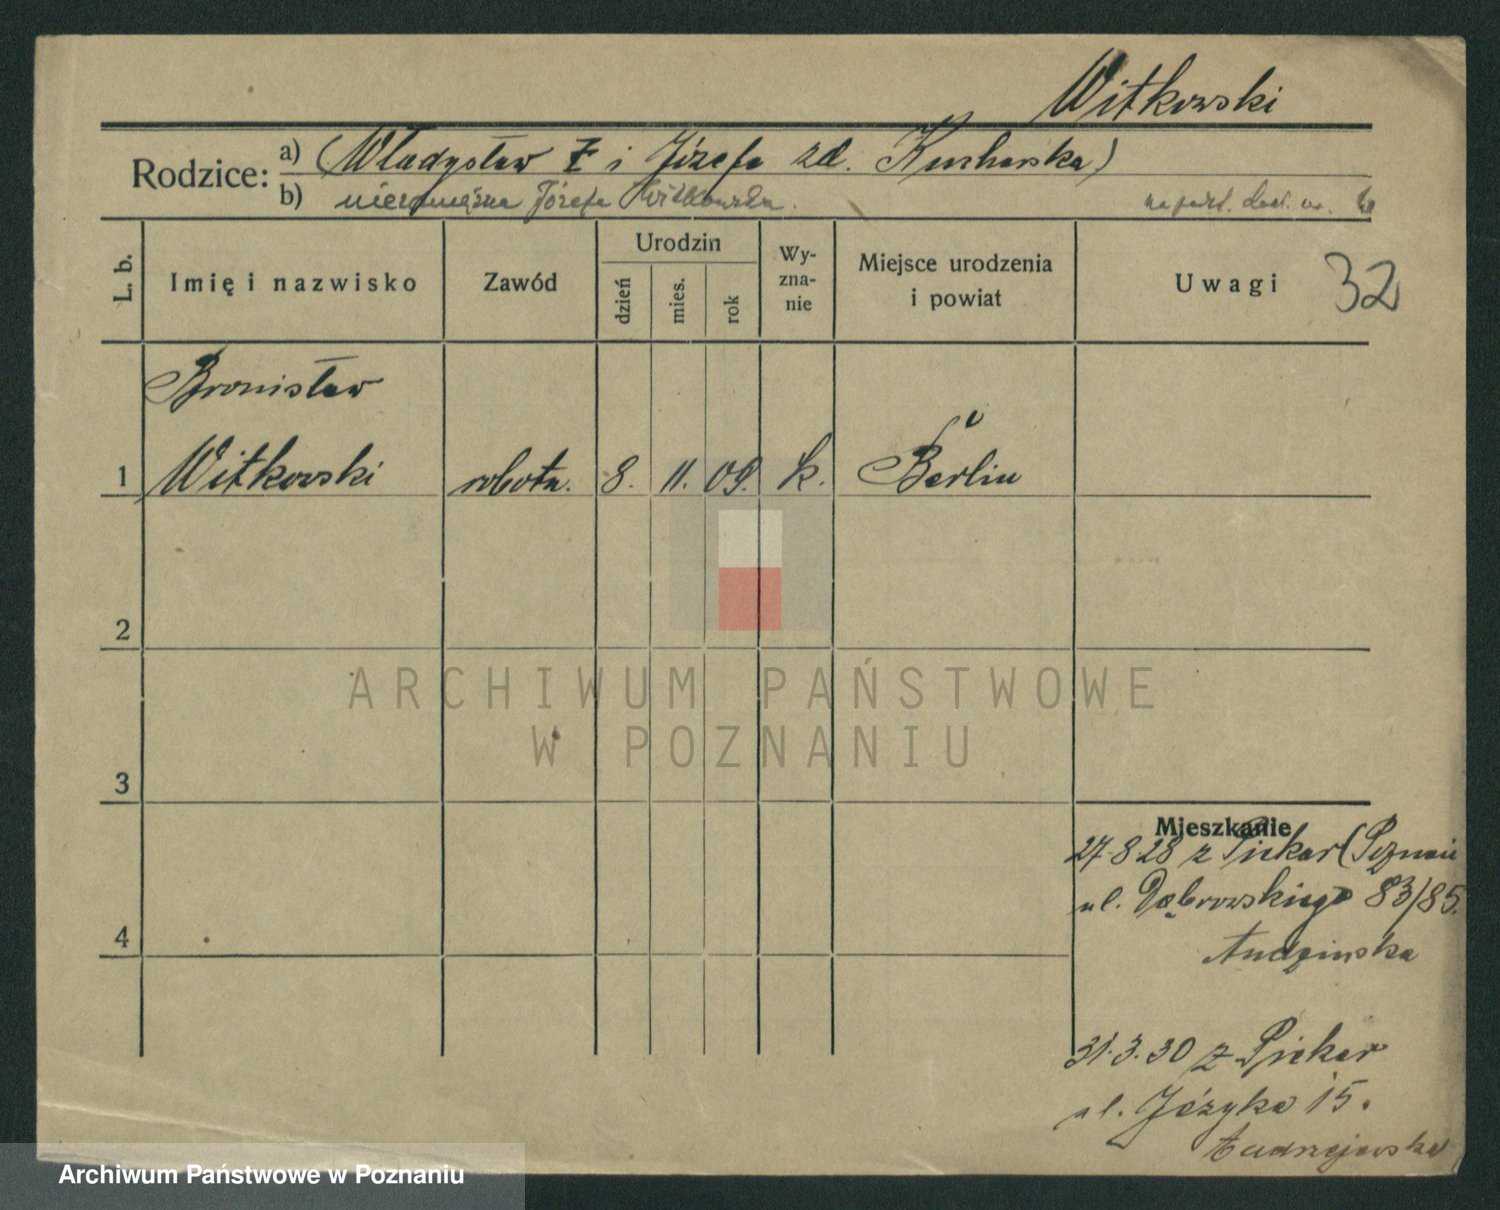 Witkowski
Rodzice: a) (Władysław i Józefa zd. Kucharska)
b) niezamężna Józefa Witkowska.
L. b. Imię i nazwisko Zawód Urodzin dzień mies. rok Wy-zna-nie Miejsce urodzenia i powiat Uwagi 32
Bronisław
1 Witkowski robotn. 8. 11. 09. k. Berlin
2
3
4
Mieszkanie
27.8.28 z Piekar (Poznań
ul. Dąbrowskiego 83/85.
31.3.30 z Piekar
ul. Jeżyka 15.
ARCHIWUM PAŃSTWOWE
W POZNANIU
Archiwum Państwowe w Poznaniu